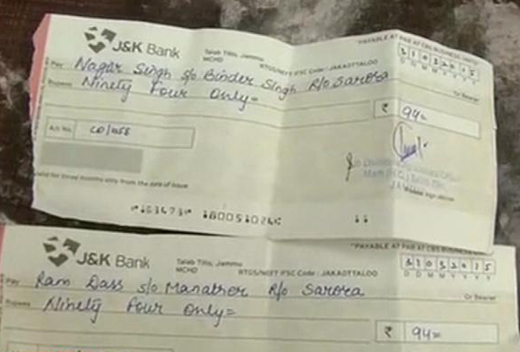 J&K Bank
Talab Tillo, Jammu
"PAYABLE AT PAR AT CBS BUSINESS UNITS"
31032015
D D M M Y Y Y Y
RTGS/NEFT IFSC Code : JAKA0TTALOO
Pay Nagar Singh s/o Binder Singh R/o Sarora
Or Bearer
Rupees Ninety Four Only=
₹ 94=
A/c No. CD/1055
Valid for three months only from the date of issue
Please sign above
J&K Bank
Talab Tillo, Jammu
MCHD
"PAYABLE AT PAR AT CBS BUSINESS
31032015
D D M M Y Y Y Y
RTGS/NEFT IFSC Code : JAKA0TTALOO
Pay Ram Dass s/o Manather R/o Sarora
Or Bearer
Rupees Ninety Four Only=
₹ 94=